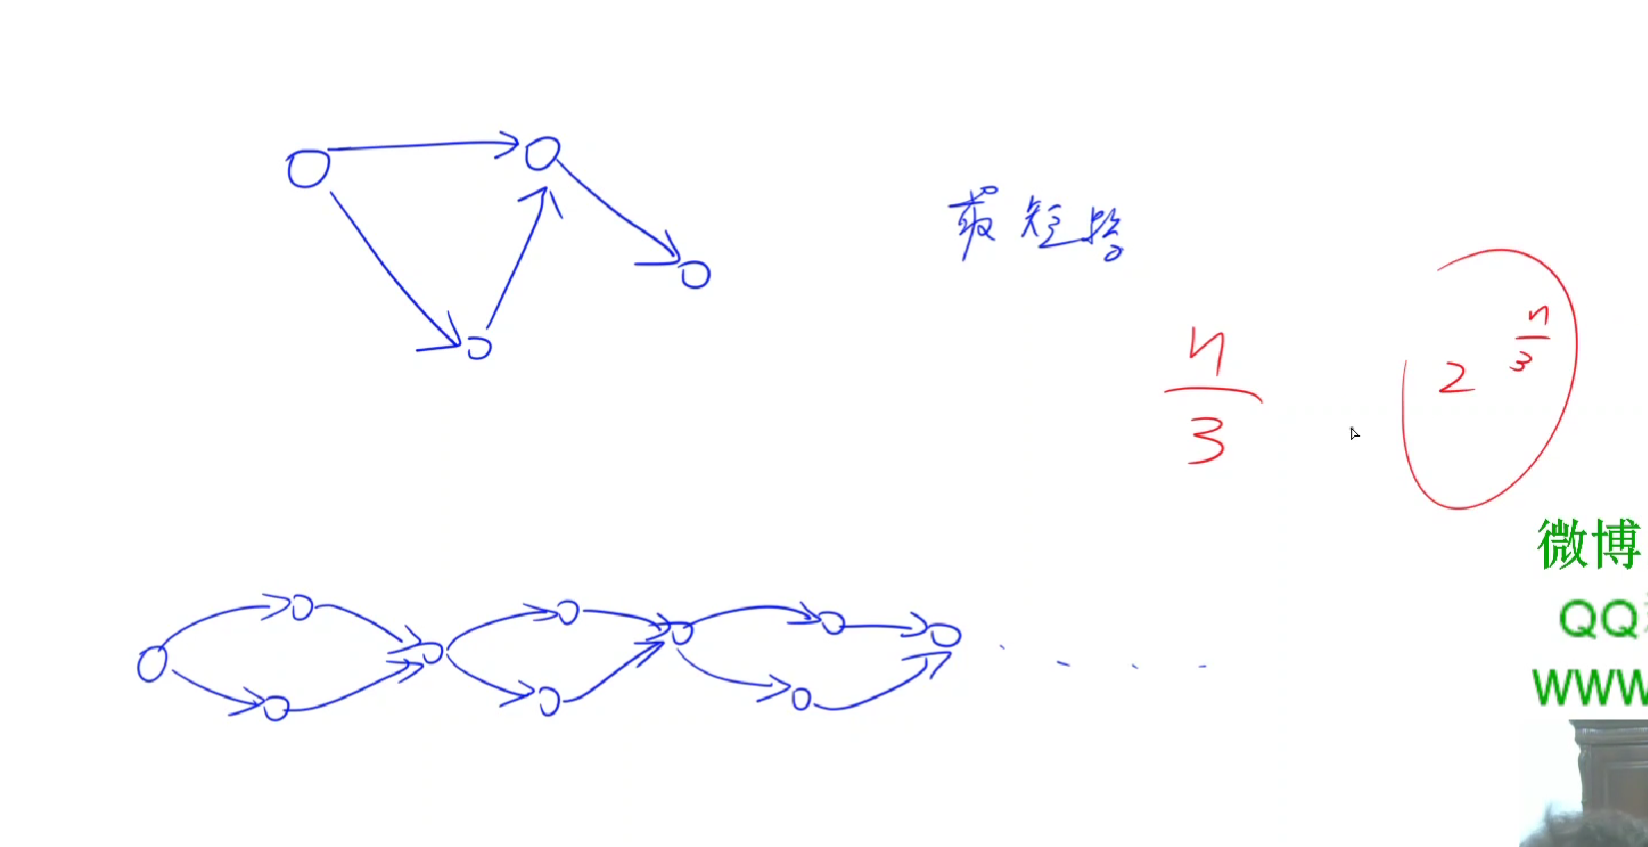 最短路
n
3
2
n
3
微博
QQ
WWW